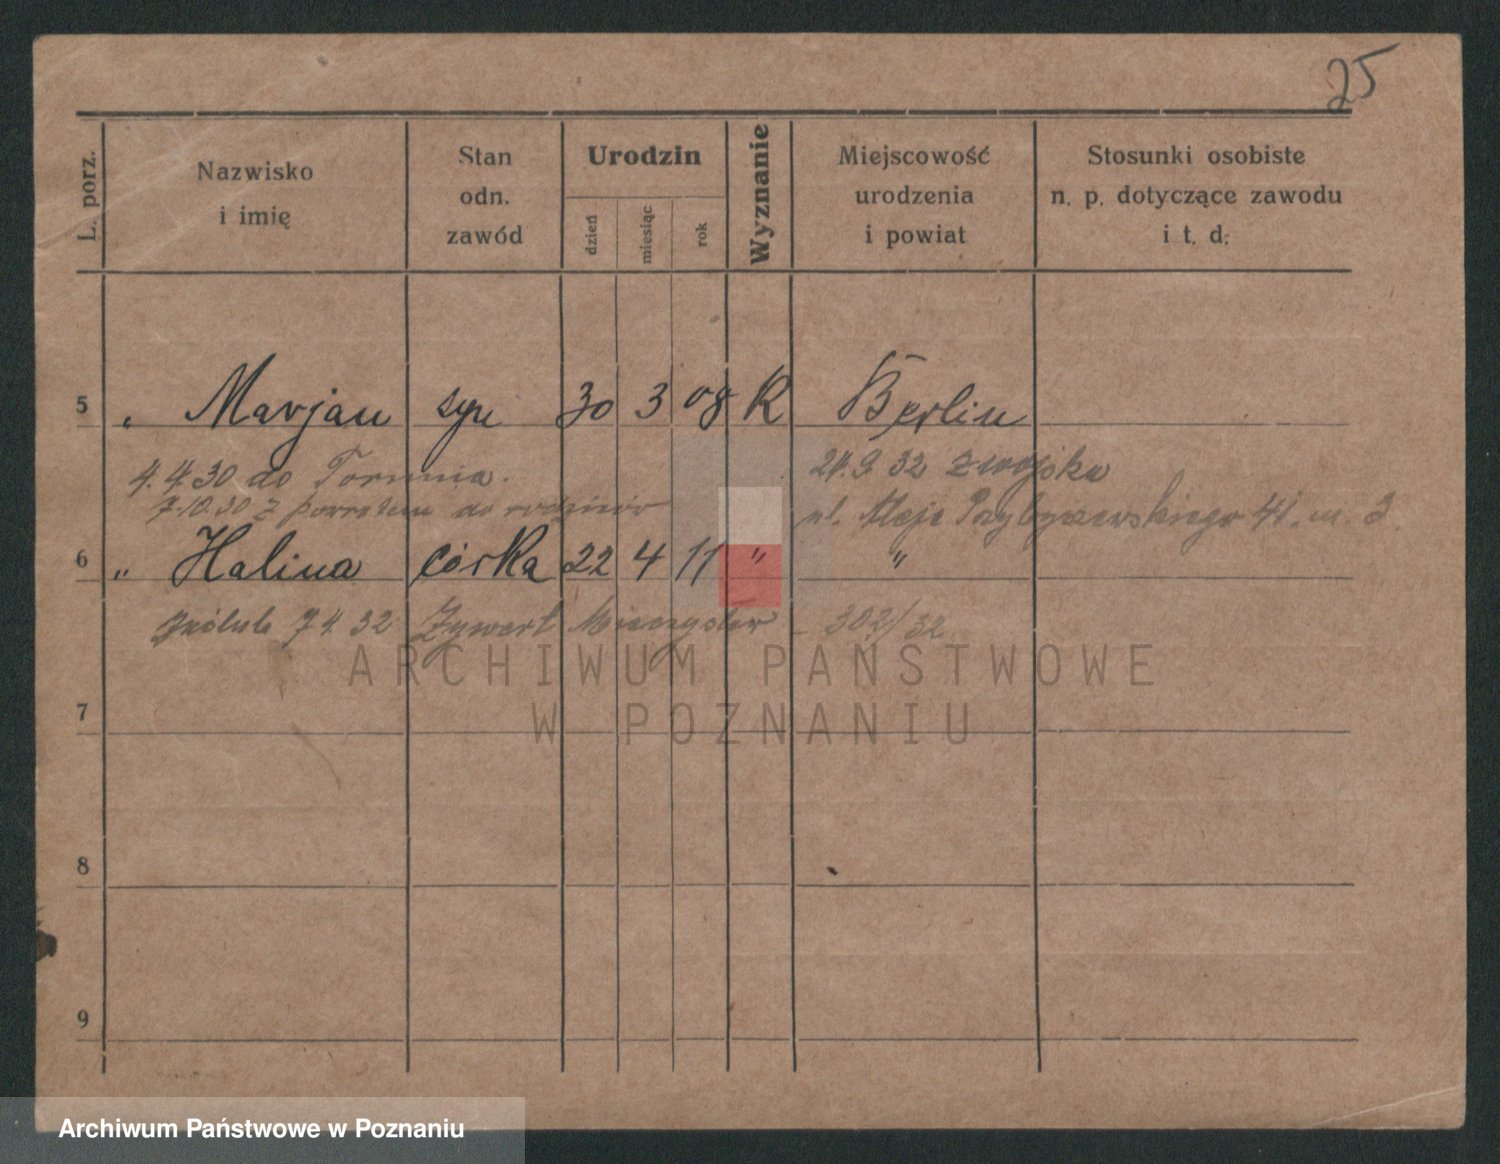 25
L. porz.
Nazwisko
i imię
Stan
odn.
zawód
Urodzin
dzień
miesiąc
rok
Wyznanie
Miejscowość
urodzenia
i powiat
Stosunki osobiste
n. p. dotyczące zawodu
i t. d.
5 " Marjan syn 30 3 08 R Berlin
4.4.30 do Torunia.
24.9.32 z wojska
7.10.30 z powrotem do rodziców
ul. Aleje Przybyszewskiego 41. m. 3.
6 " Halina córka 22 4 11 " "
7.4.32 Żywert Mieczysław - 302/32
7
8
9
ARCHIWUM PAŃSTWOWE
W POZNANIU
Archiwum Państwowe w Poznaniu